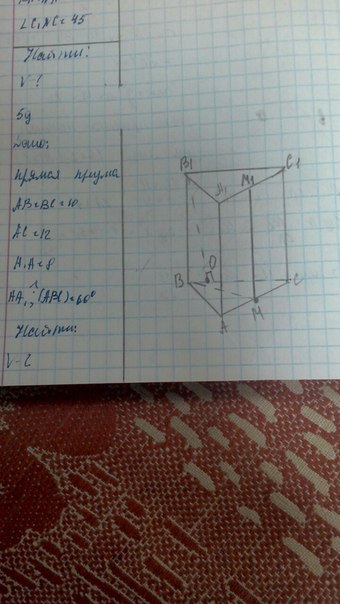 ∠C₁NC = 45
Найти:
V-?
5у
Дано:
прямая призма
AB=BC=10
AC=12
A₁A=8
AA₁;^(ABC)=60°
Найти:
V-?
B₁ C₁
A₁ M₁
O
B C
A M